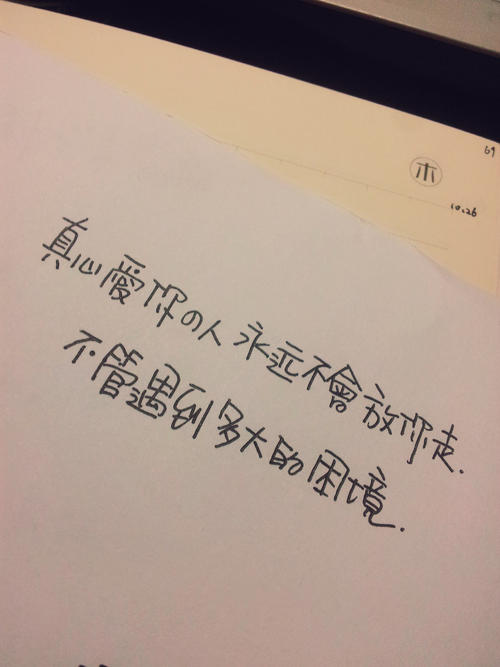 69
木
10.26
真心愛你の人永远不會放你走.
不管遇到多大的困境.